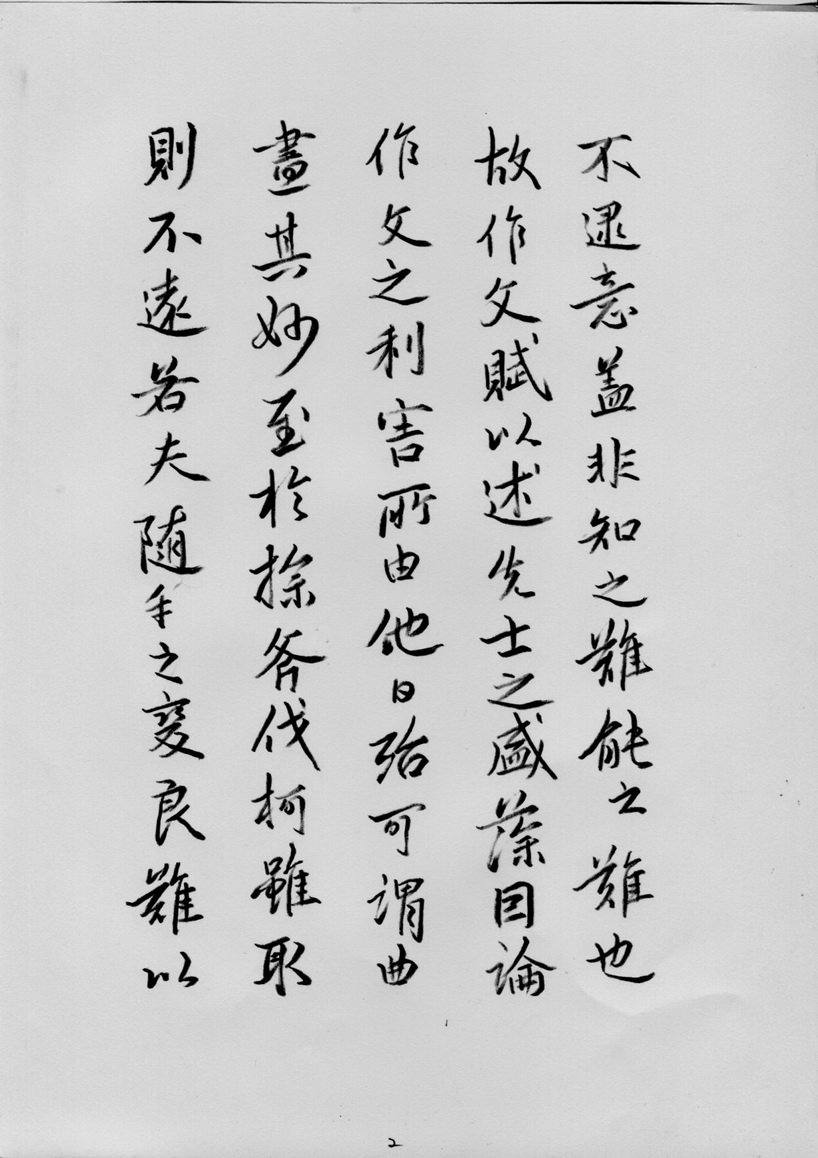 不逮意盖非知之難能之難也
故作文賦以述先士之盛藻因論
作文之利害所由他日殆可謂曲
盡其妙至於操斧伐柯雖取
則不遠若夫随手之變良難以
2